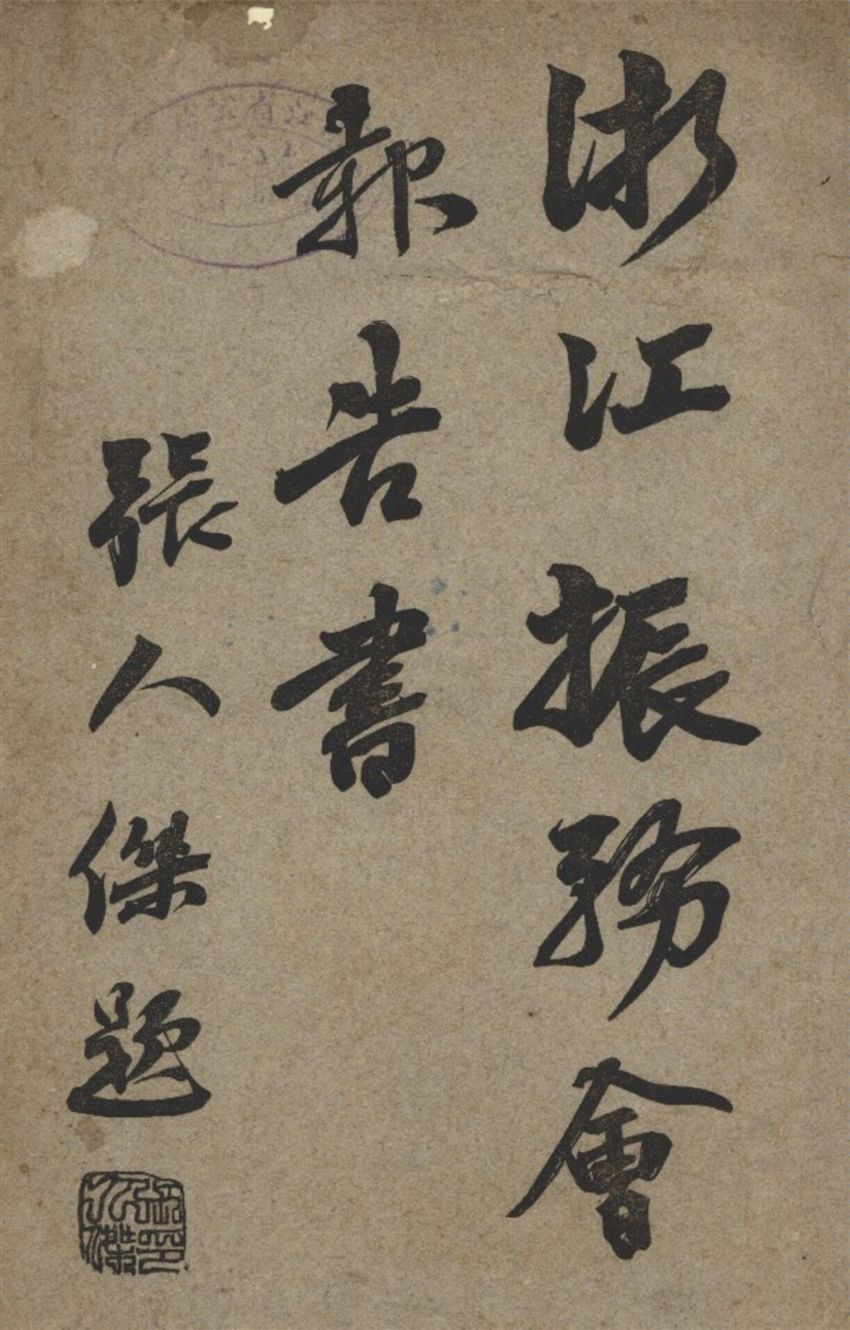 浙江振務會
報告書
張人傑題